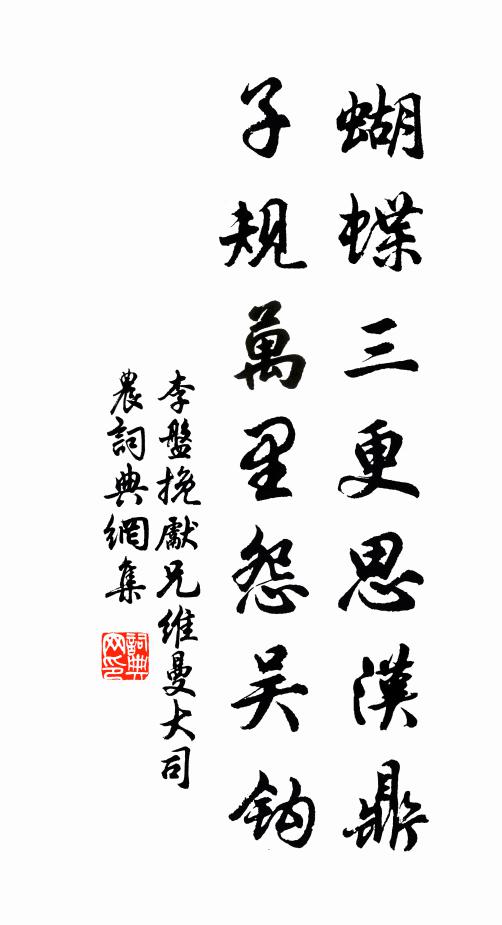 蝴蝶三更思漢鼎
子規萬里怨吴鈎
李盤挽獻兄維曼大司
農詞典網集
詞典
网印